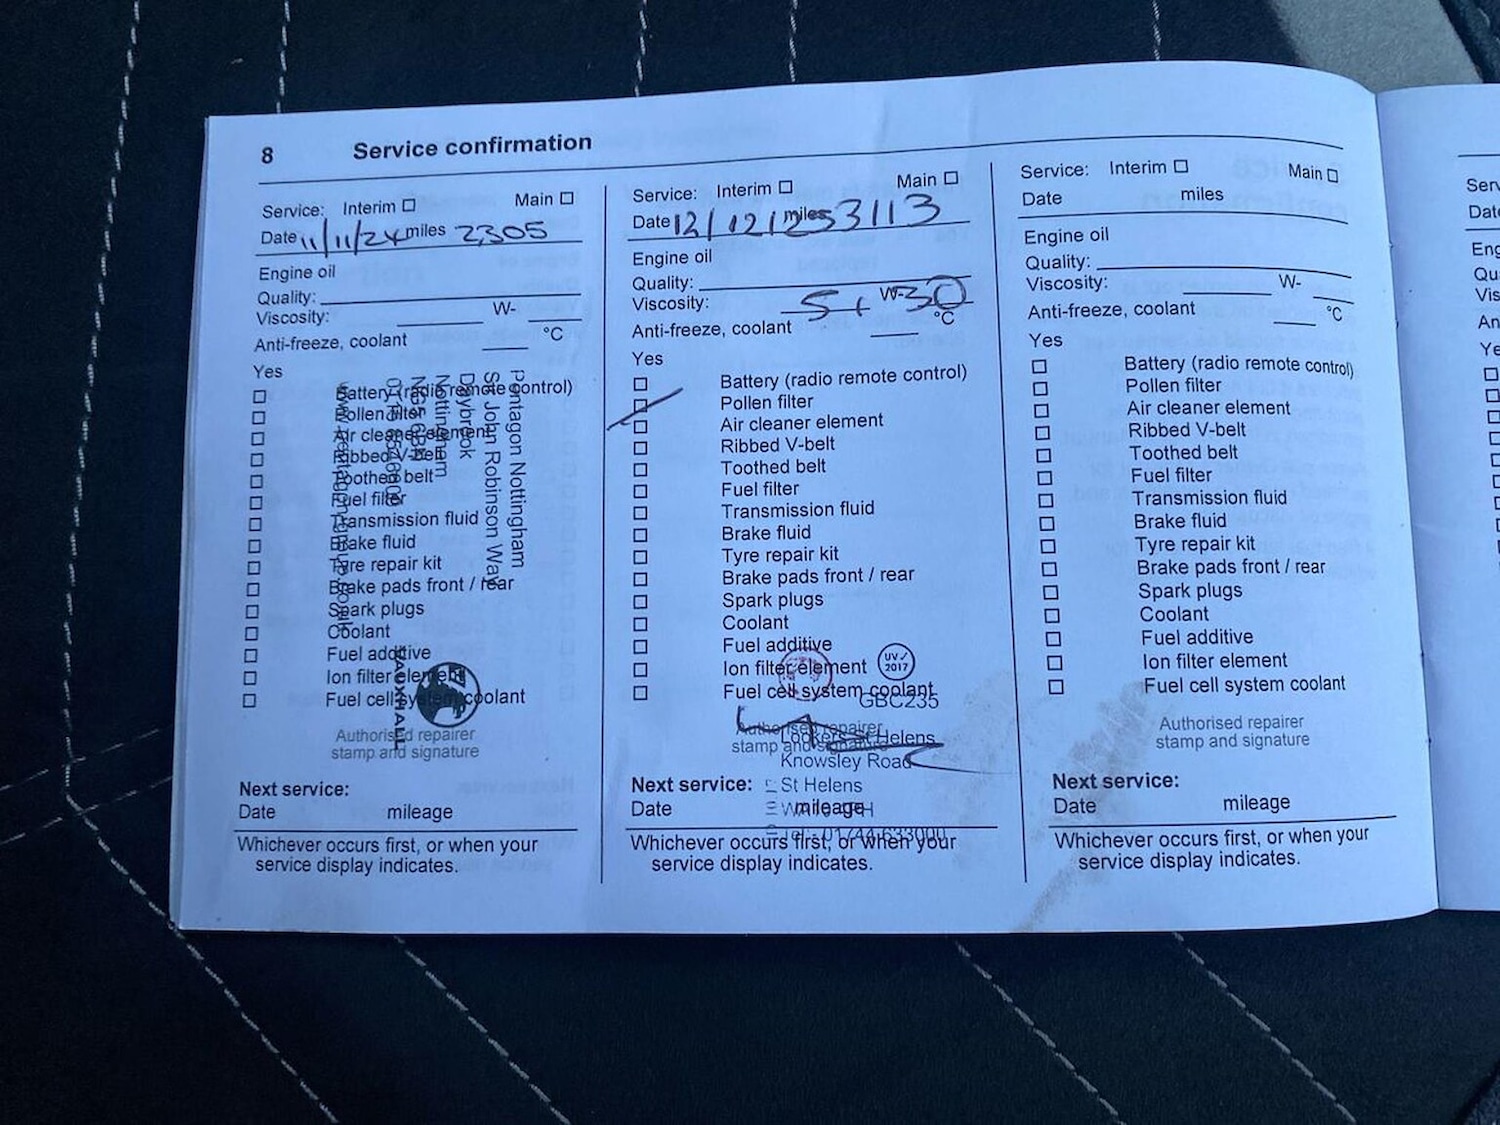 8 Service confirmation
Service: Interim Main
Date 11/11/24 miles 2,305
Engine oil
Quality:
Viscosity: W-
Anti-freeze, coolant °C
Yes
Battery (radio remote control)
Pollen filter
Air cleaner element
Ribbed V-belt
Toothed belt
Fuel filter
Transmission fluid
Brake fluid
Tyre repair kit
Brake pads front / rear
Spark plugs
Coolant
Fuel additive
Ion filter element
Fuel cell system coolant
Pentagon Nottingham
St John Robinson Way
Daybrook
Nottingham
VAUXHALL
Authorised repairer
stamp and signature
Next service:
Date mileage
Whichever occurs first, or when your
service display indicates.
Service: Interim Main
Date 12/12/25 miles 3113
Engine oil
Quality:
Viscosity: 5 W-30
Anti-freeze, coolant °C
Yes
Battery (radio remote control)
Pollen filter
Air cleaner element
Ribbed V-belt
Toothed belt
Fuel filter
Transmission fluid
Brake fluid
Tyre repair kit
Brake pads front / rear
Spark plugs
Coolant
Fuel additive
Ion filter element
Fuel cell system coolant
UV✓
2017
GBC235
Authorised repairer
stamp and signature
St Helens
Knowsley Road
St Helens
Tel: 01744 633000
Next service:
Date mileage
Whichever occurs first, or when your
service display indicates.
Service: Interim Main
Date miles
Engine oil
Quality:
Viscosity: W-
Anti-freeze, coolant °C
Yes
Battery (radio remote control)
Pollen filter
Air cleaner element
Ribbed V-belt
Toothed belt
Fuel filter
Transmission fluid
Brake fluid
Tyre repair kit
Brake pads front / rear
Spark plugs
Coolant
Fuel additive
Ion filter element
Fuel cell system coolant
Authorised repairer
stamp and signature
Next service:
Date mileage
Whichever occurs first, or when your
service display indicates.